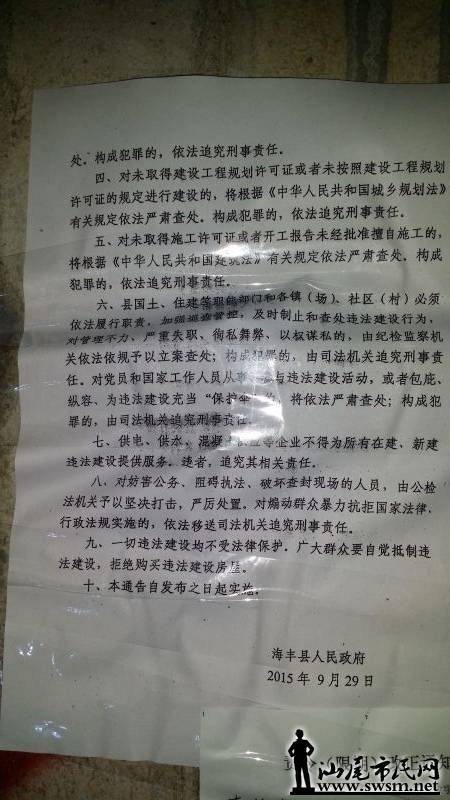 处。构成犯罪的，依法追究刑事责任。
四、对未取得建设工程规划许可证或者未按照建设工程规划
许可证的规定进行建设的，将根据《中华人民共和国城乡规划法》
有关规定依法严肃查处。构成犯罪的，依法追究刑事责任。
五、对未取得施工许可证或者开工报告未经批准擅自施工的，
将根据《中华人民共和国建筑法》有关规定依法严肃查处。构成
犯罪的，依法追究刑事责任。
六、县国土、住建等职能部门和各镇（场）、社区（村）必须
依法履行职责，加强巡查管控，及时制止和查处违法建设行为，
对管理不力、严重失职、徇私舞弊、以权谋私的，由纪检监察机
关依法依规予以立案查处；构成犯罪的，由司法机关追究刑事责
任。对党员和国家工作人员从事、参与违法建设活动，或者包庇、
纵容、为违法建设充当“保护伞”的，将依法严肃查处；构成犯
罪的，由司法机关追究刑事责任。
七、供电、供水、混凝土供应等企业不得为所有在建、新建
违法建设提供服务。违者，追究其相关责任。
八、对妨害公务、阻碍执法、破坏查封现场的人员，由公检
法机关予以坚决打击，严厉处置。对煽动群众暴力抗拒国家法律、
行政法规实施的，依法移送司法机关追究刑事责任。
九、一切违法建设均不受法律保护。广大群众要自觉抵制违
法建设，拒绝购买违法建设房屋。
十、本通告自发布之日起实施。
海丰县人民政府
2015 年 9 月 29 日
汕尾市民网
www.swsm.net